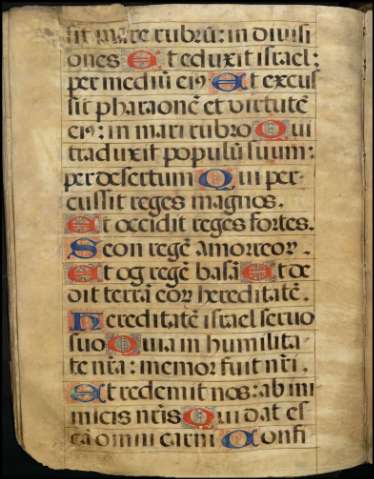 sit mare rubrū: in divisi
ones Et eduxit israel:
per mediū eiꝰ Et excus
sit pharaonē et virtutē
eiꝰ: in mari rubro Qui
traduxit populū suum:
per desertum Qui per
cussit reges magnos.
Et occidit reges fortes.
Seon regē amorreoꝝ.
Et og regē basā Et de
dit terrā eoꝝ hereditatē.
Hereditatē israel servo
suo Quia in humilita
te nr̄a: memor fuit nr̄i.
Et redemit nos: ab ini
micis nr̄is Qui dat es
cā omni carni Confi